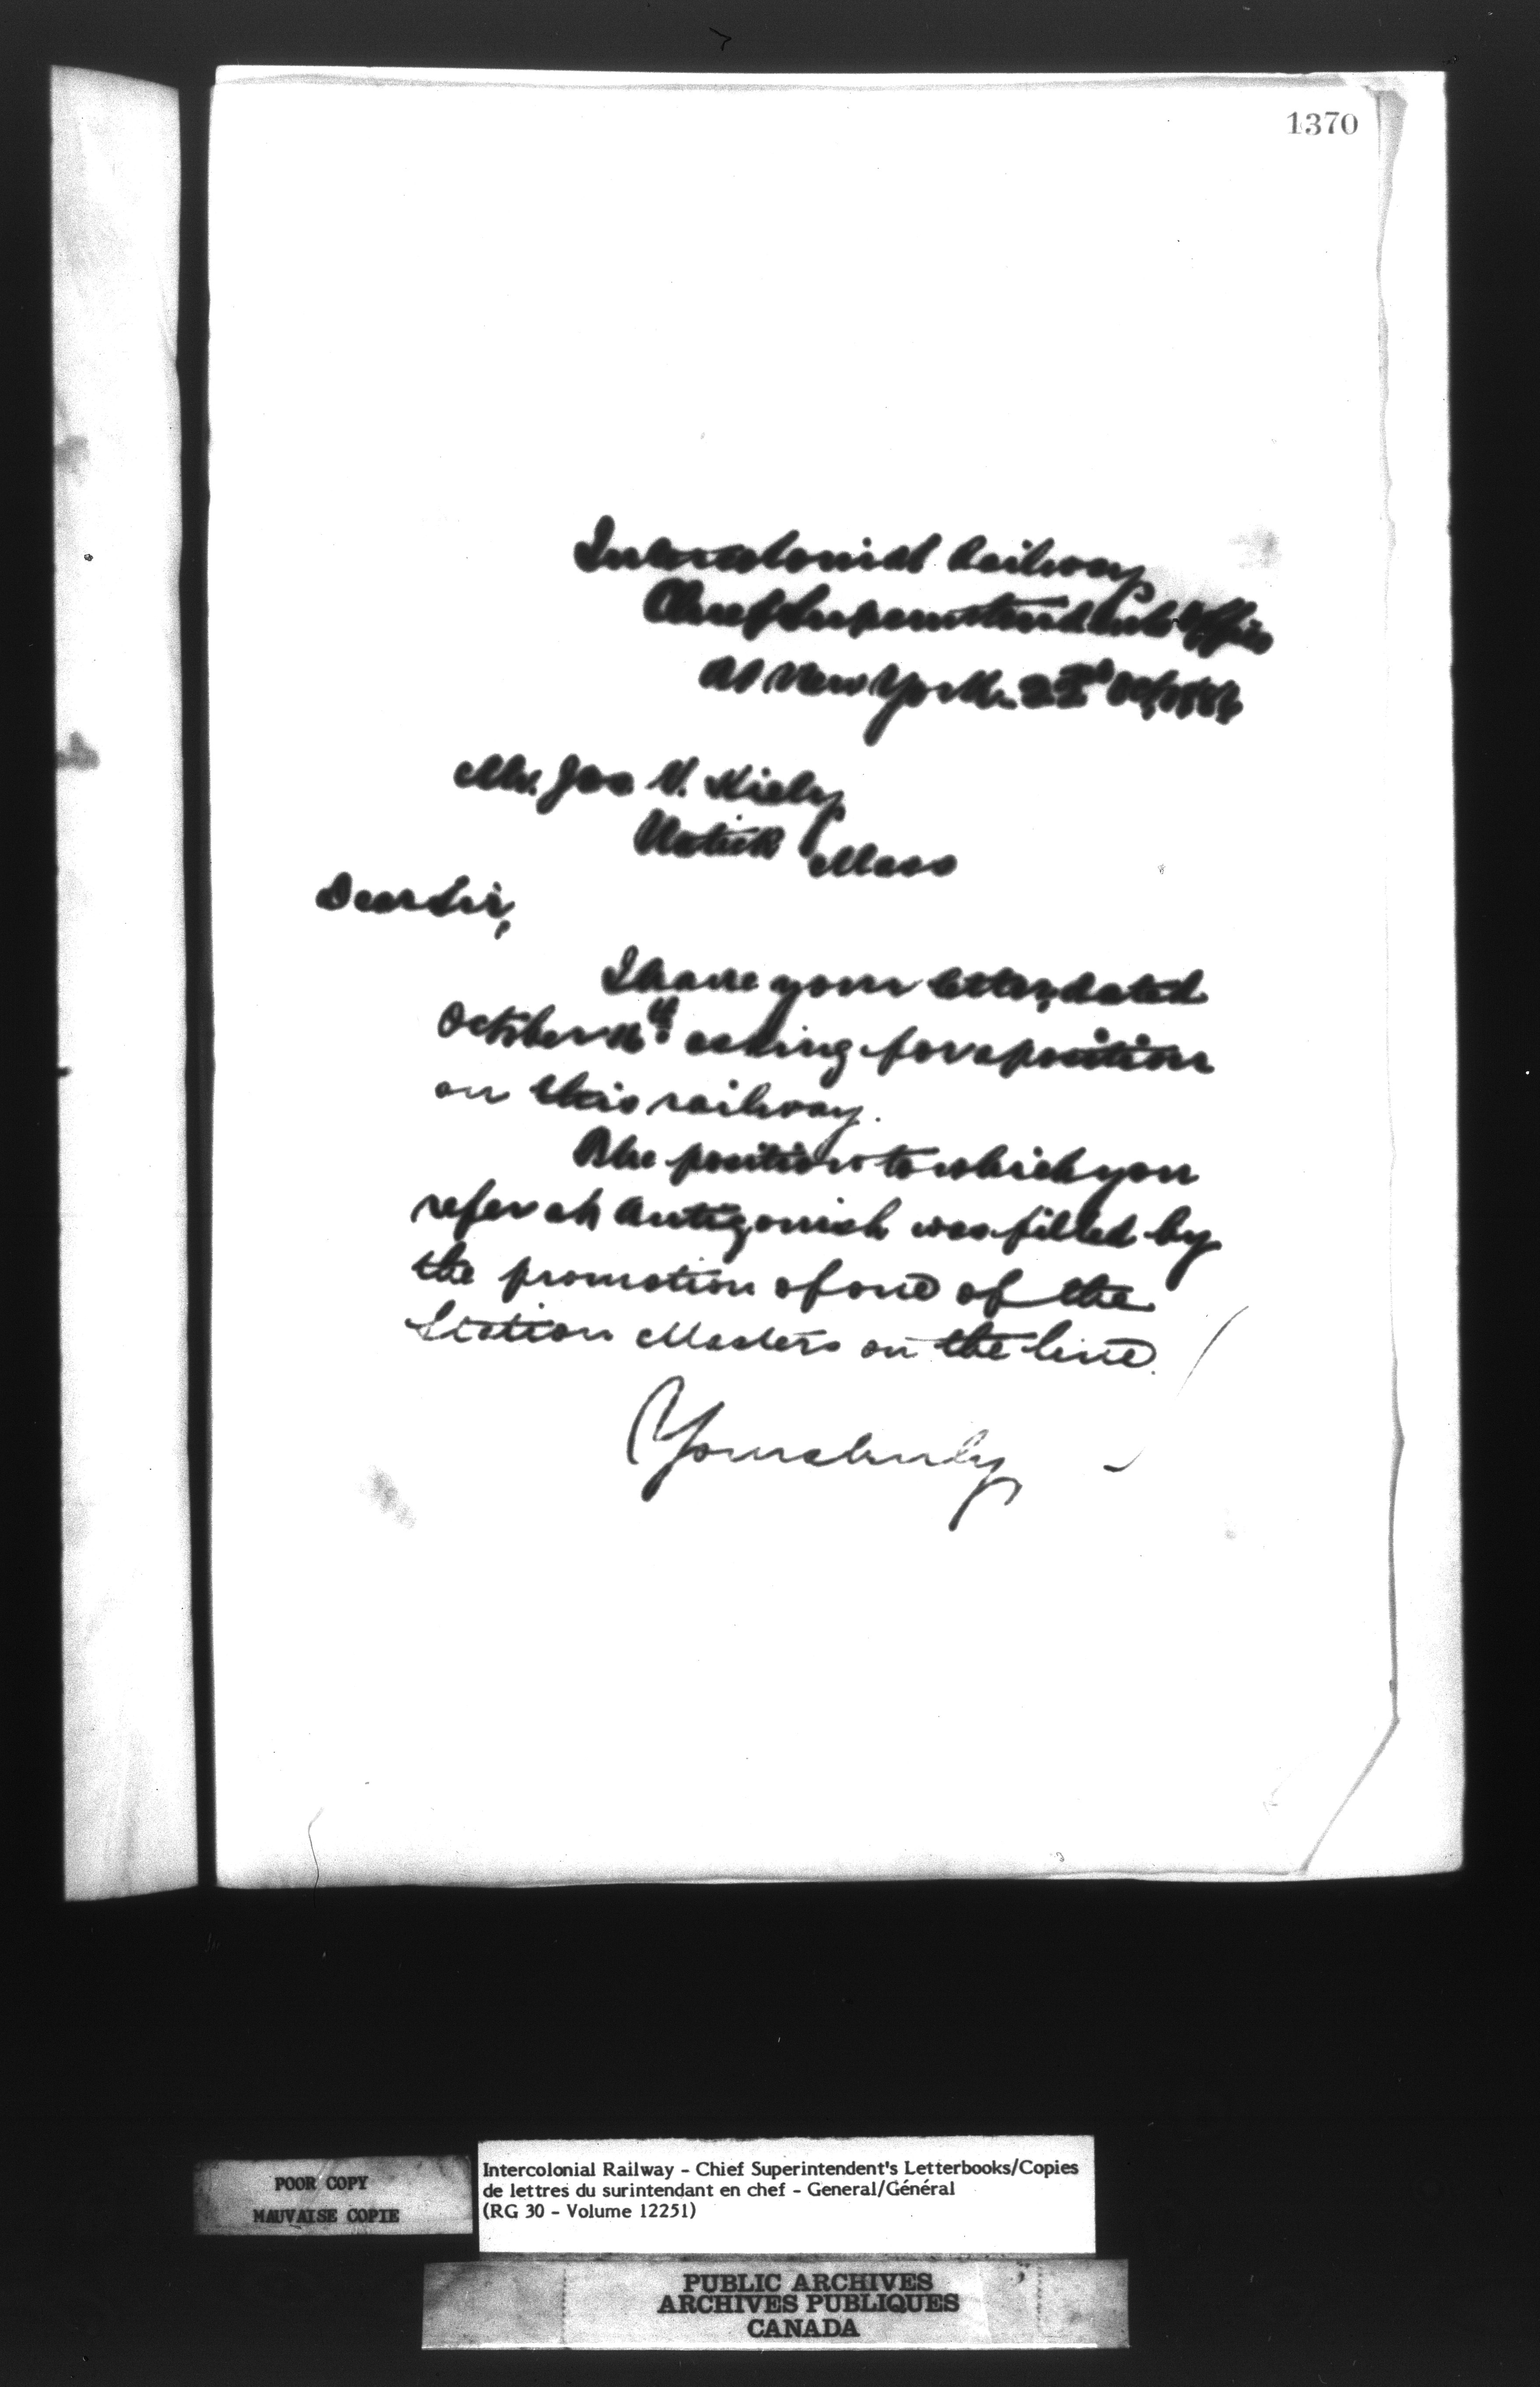 1370
Intercolonial Railway
Chief Superintendents Office
At New York 22nd Oct 1886
Mr. Jas V. Kiely
Natick Mass
Dear Sir,
I have your letter, dated
October 16th asking for a position
on this railway.
The position to which you
refer at Antigonish was filled by
the promotion of one of the
Station Masters on the line.
Yours truly
POOR COPY
MAUVAISE COPIE
Intercolonial Railway - Chief Superintendent's Letterbooks/Copies
de lettres du surintendant en chef - General/Général
(RG 30 - Volume 12251)
PUBLIC ARCHIVES
ARCHIVES PUBLIQUES
CANADA